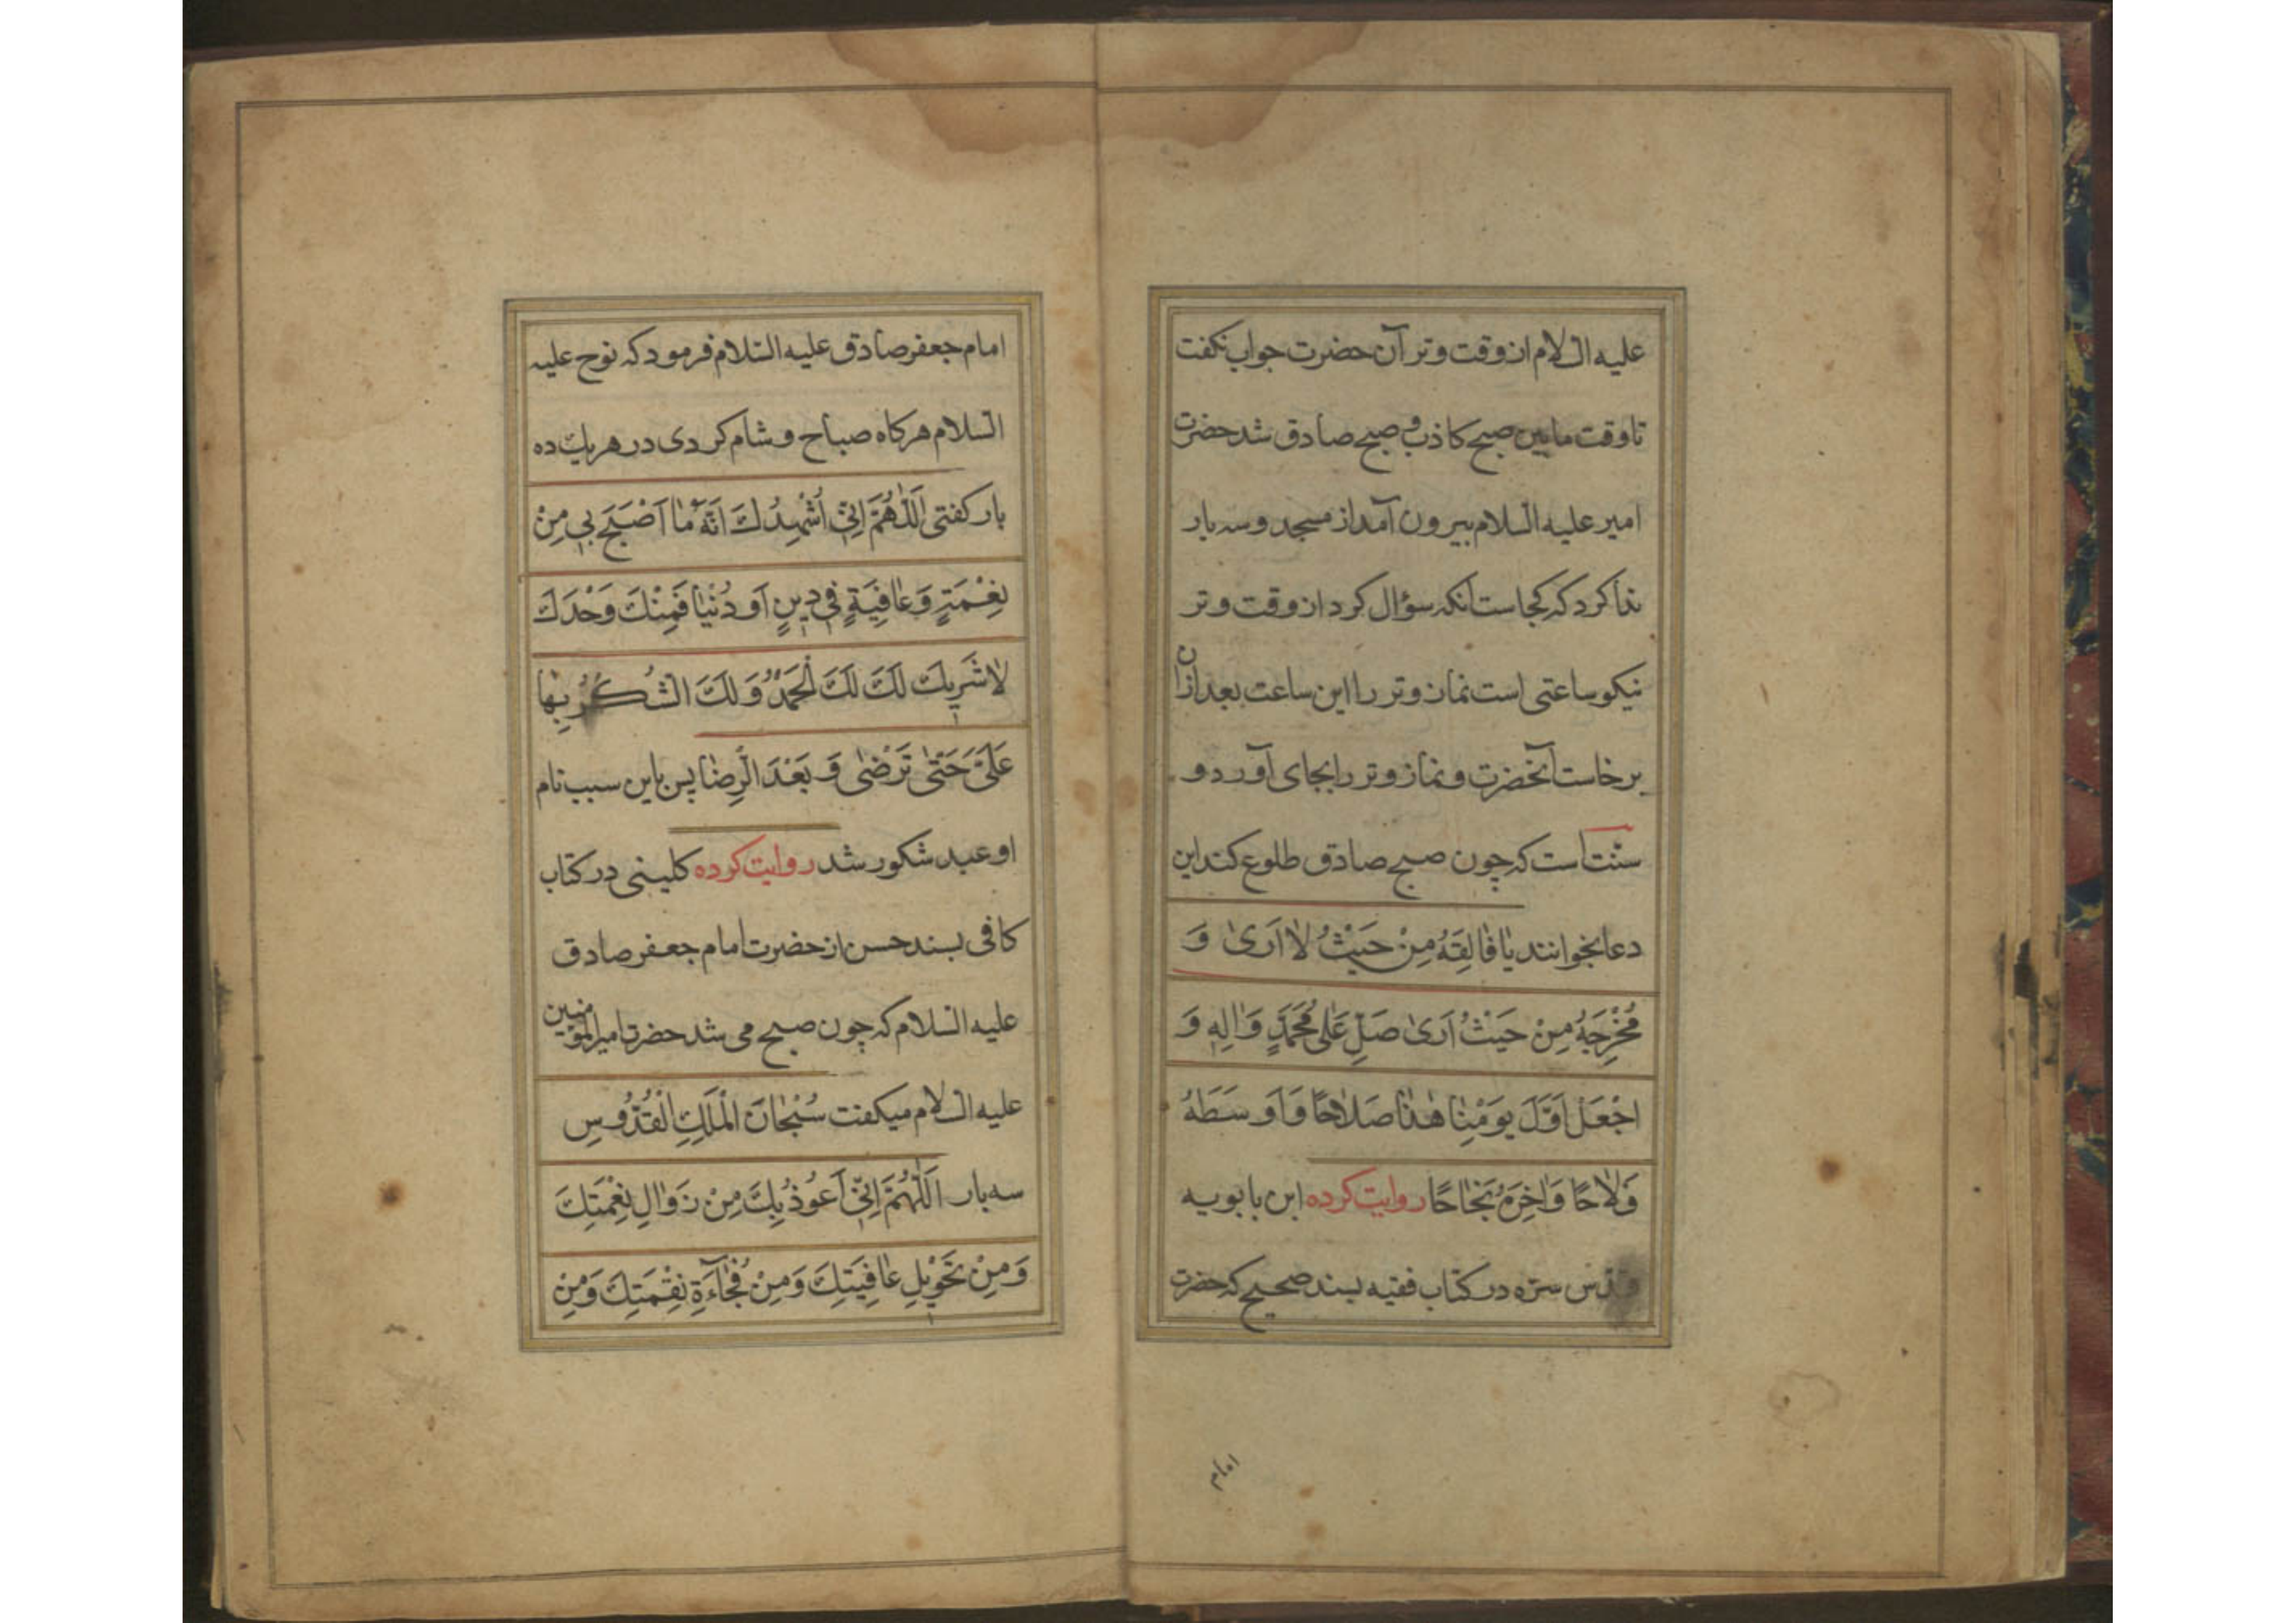 علیه السلام از وقت وتر آن حضرت جواب نکفت
تا وقت مابین صبح کاذب و صبح صادق شد حضرت
امیر علیه السلام بیرون آمد از مسجد و سه بار
ندا کرد که کجاست آنکه سؤال کرد از وقت وتر
نیکو ساعتی است نماز وتر را این ساعت بعد ازان
برخاست آنحضرت و نماز وتر را بجای آورد و
سنّت است که چون صبح صادق طلوع کند این
دعا بخوانند یٰا فٰالِقَهُ مِنْ حَیْثُ لاٰ اَریٰ وَ
مُخْرِجَهُ مِنْ حَیْثُ اَریٰ صَلِّ عَلیٰ مُحَمَّدٍ وَاٰلِهٖ وَ
اجْعَلْ اَوَّلَ یَوْمِنٰا هٰذٰا صَلاٰحًا وَ اَوْسَطَهُ
فَلاٰحًا وَاٰخِرَهُ نَجٰاحًا روایت کرده ابن بابویه
قدّس سرّه در کتاب فقیه بسند صحیح که حضرت
امام
امام جعفر صادق علیه السّلام فرمود که نوح علیه
السّلام هرکاه صباح و شام کردی در هر یک ده
بار کفتی اَللّٰهُمَّ اِنّیٖ اُشْهِدُكَ اَنَّهُ مٰا اَصْبَحَ بیٖ مِنْ
نِعْمَةٍ وَ عٰافِیَةٍ فیٖ دیٖنٍ اَوْ دُنْیٰا فَمِنْكَ وَحْدَكَ
لاٰ شَریٖكَ لَكَ لَكَ الْحَمْدُ وَ لَكَ الشُّكْرُ بِهٰا
عَلَیَّ حَتّیٰ تَرْضیٰ وَ بَعْدَ الرِّضٰا پس باین سبب نام
او عبد شکور شد روایت کرده کلینی در کتاب
کافی بسند حسن از حضرت امام جعفر صادق
علیه السّلام که چون صبح می شد حضرت امیرالمؤمنین
علیه السلام میکفت سُبْحٰانَ الْمَلِكِ الْقُدُّوسِ
سه بار اَللّٰهُمَّ اِنّیٖ اَعُوذُ بِكَ مِنْ زَوٰالِ نِعْمَتِكَ
وَ مِنْ تَحْویٖلِ عٰافِیَتِكَ وَ مِنْ فُجٰاءَةِ نِقْمَتِكَ وَ مِنْ